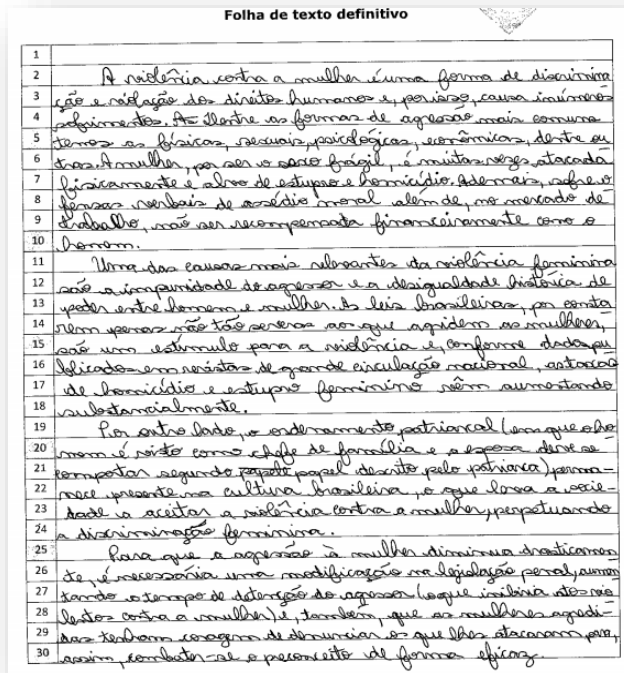 Folha de texto definitivo
1
2 A violência contra a mulher é uma forma de discrimina
3 ção e violação dos direitos humanos e, por isso, causa inúmeros
4 sofrimentos. Dentre as formas de agressão mais comuns
5 temos as físicas, sexuais, psicológicas, econômicas, dentre ou
6 tras. A mulher, por ser o sexo frágil, é muitas vezes atacada
7 fisicamente e alvo de estupro e homicídio. Ademais, sofre o
8 fensas verbais de assédio moral além de, no mercado de
9 trabalho, não ser recompensada financeiramente como o
10 homem.
11 Uma das causas mais relevantes da violência feminina
12 são a impunidade do agressor e a desigualdade histórica de
13 poder entre homem e mulher. As leis brasileiras, por conta
14 rem penas não tão severas aos que agridem as mulheres,
15 são um estímulo para a violência e, conforme dados pu
16 blicados em revistas de grande circulação nacional, as taxas
17 de homicídio e estupro feminino vêm aumentando
18 substancialmente.
19 Por outro lado, o ordenamento patriarcal (em que o ho
20 mem é visto como chefe de família e a esposa deve se
21 comportar segundo papel descrito pelo patriarca) perma-
22 nece presente na cultura brasileira, o que leva a socie-
23 dade a aceitar a violência contra a mulher, perpetuando
24 a discriminação feminina.
25 Para que a agressão à mulher diminua drasticamen
26 te, é necessária uma modificação na legislação penal, aumen
27 tando o tempo de detenção do agressor (o que inibiria atos vio
28 lentos contra a mulher) e, também, que as mulheres agredi-
29 das tenham coragem de denunciar os que lhes atacaram, para,
30 assim, combater-se o preconceito de forma eficaz.